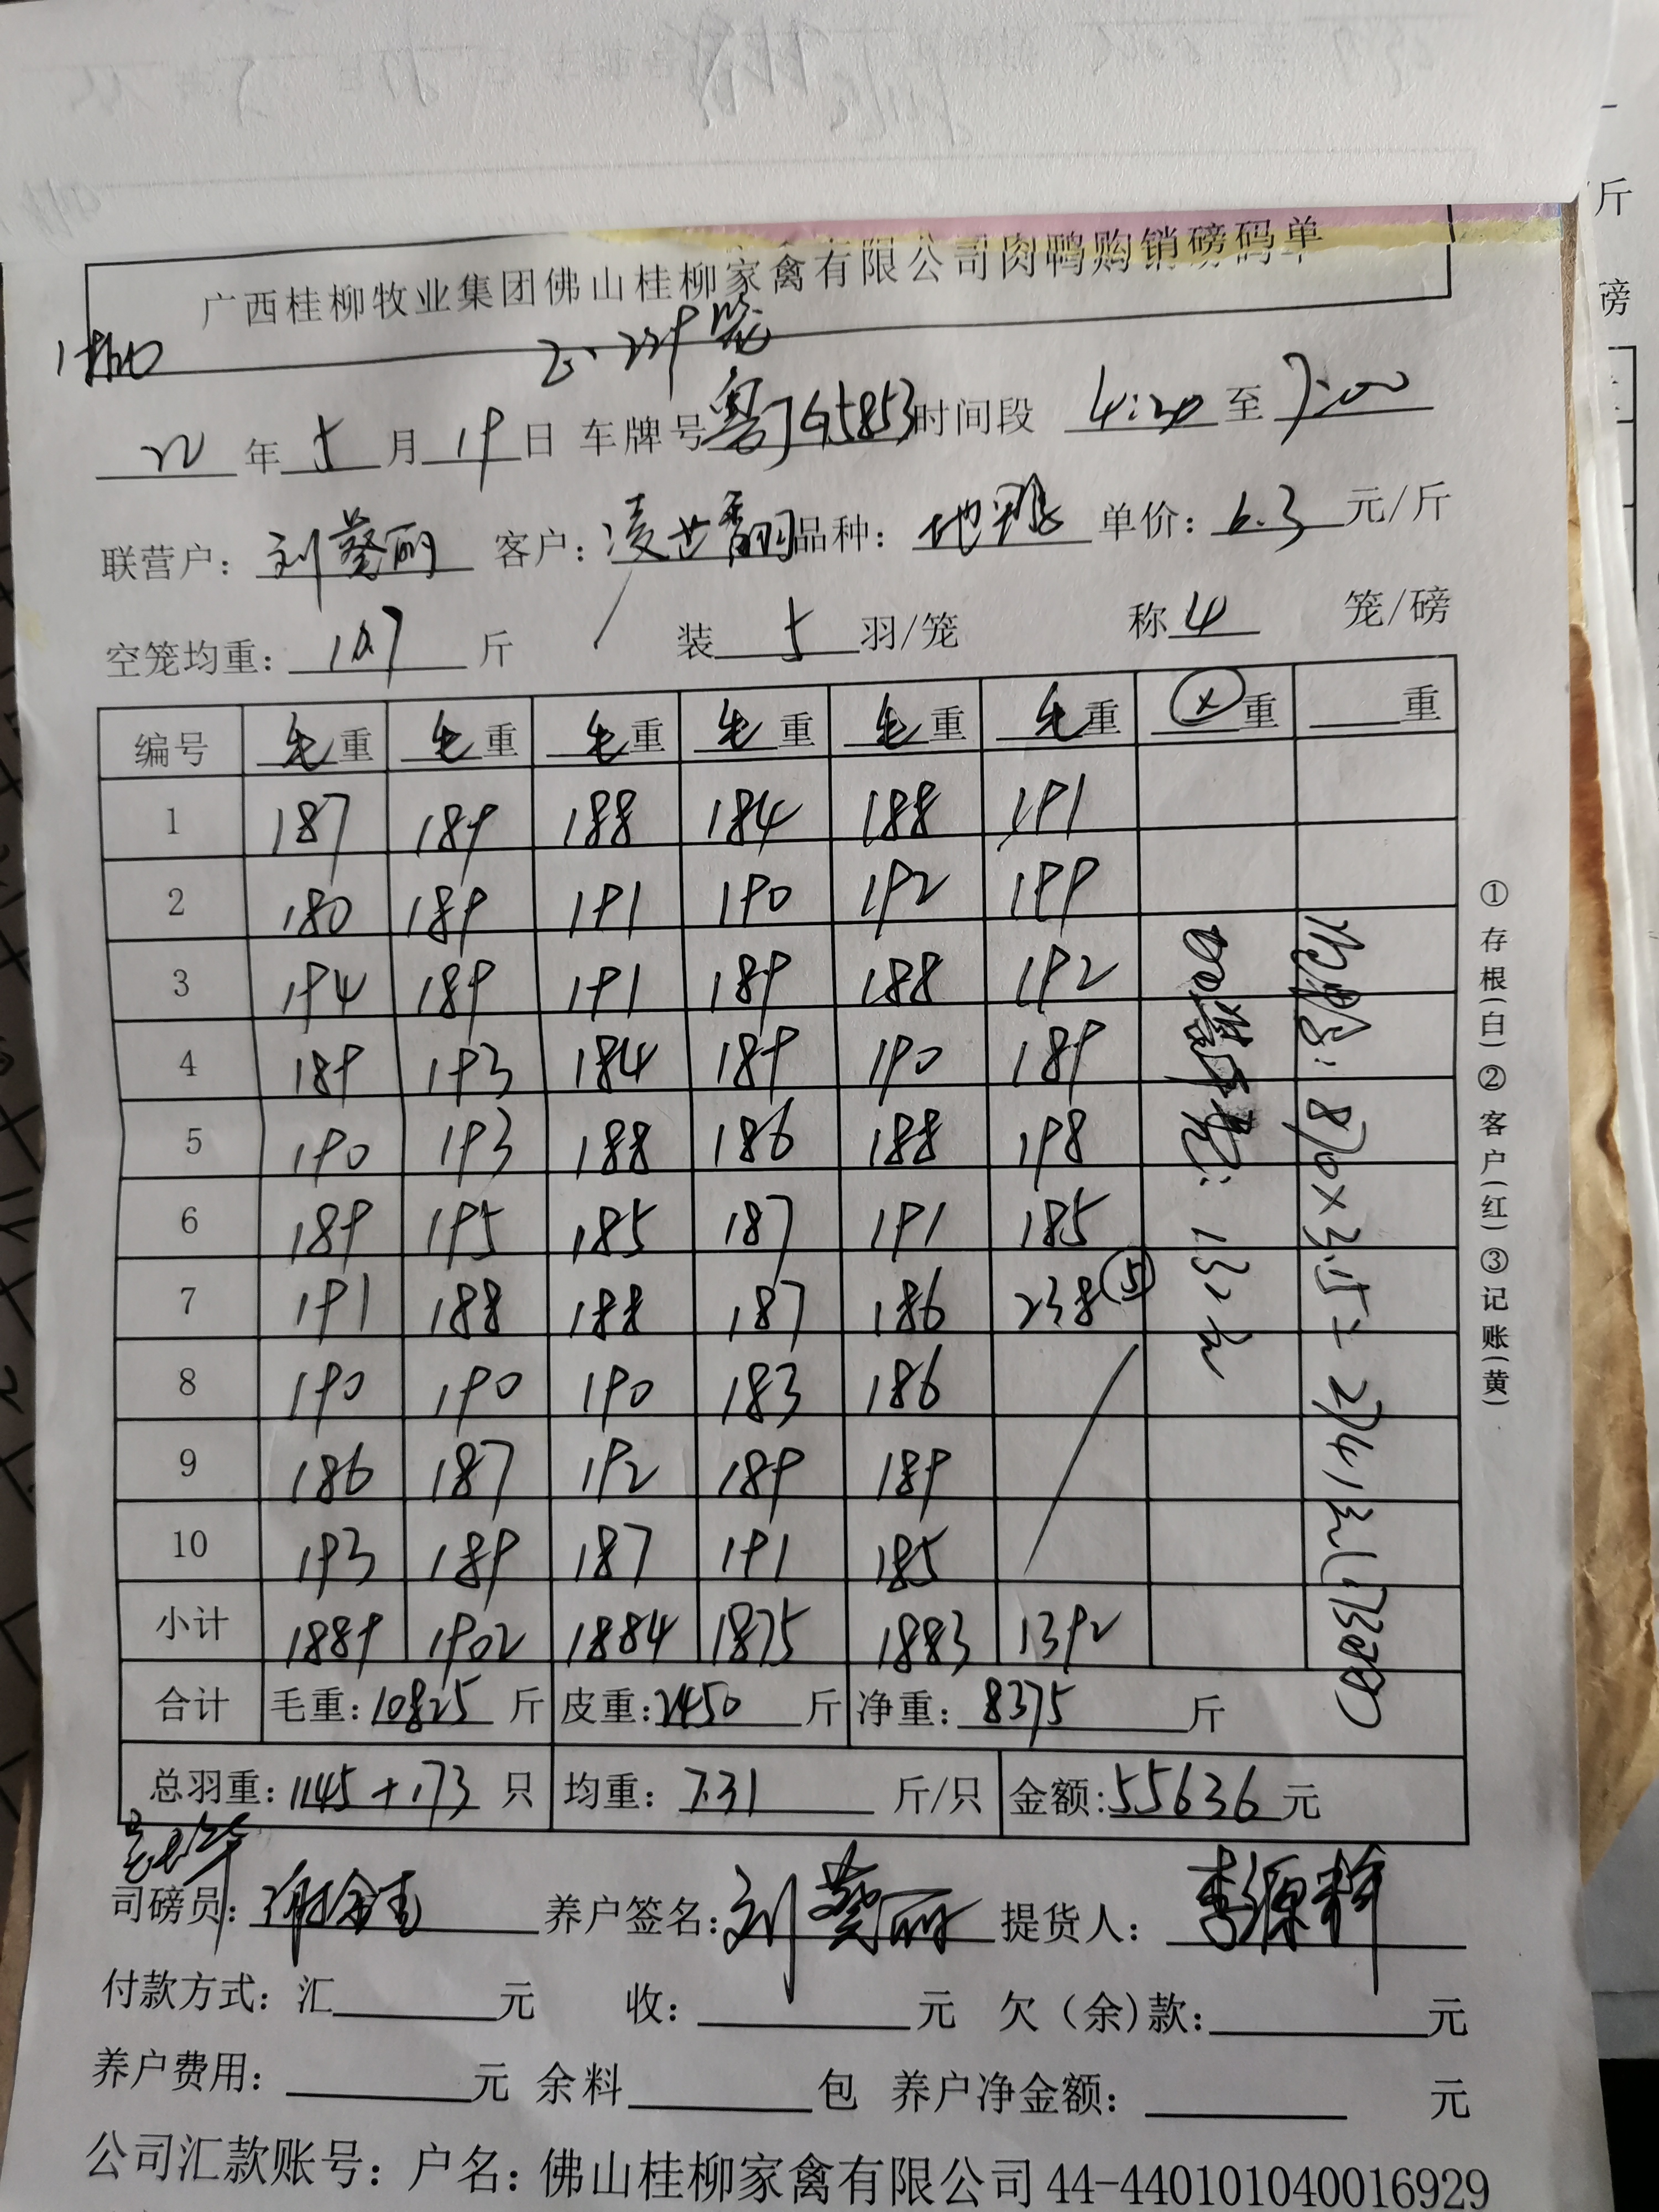 广西桂柳牧业集团佛山桂柳家禽有限公司肉鸭购销磅码单
2.229笼
22年5月19日 车牌号粤JG5853时间段 4:20至7:00
联营户：刘葵丽 客户：凌世翻 品种： 单价：6.3元/斤
空笼均重：10.7斤 装5羽/笼 称4笼/磅
编号 毛重 毛重 毛重 毛重 毛重 毛重 ×重 重
1 187 189 188 184 188 191
2 180 189 191 190 192 199
3 194 189 191 189 188 192
4 189 193 184 189 190 189
5 190 193 188 186 188 198
6 189 195 185 187 191 185
7 191 188 188 187 186 238 ⑤
8 190 190 190 183 186
9 186 187 192 189 189
10 193 189 187 191 185
小计 1889 1902 1884 1875 1883 1392
合计 毛重：10825斤 皮重：2450斤 净重：8375斤
总羽重：1145+173只 均重：7.31斤/只 金额：55636元
：132元
：870×3.15=2741元(173只)
①存根(白)②客户(红)③记账(黄)
司磅员： 养户签名：刘葵丽 提货人：李源料
付款方式：汇 元 收： 元 欠（余）款： 元
养户费用： 元 余料 包 养户净金额： 元
公司汇款账号：户名：佛山桂柳家禽有限公司44-440101040016929
斤
磅